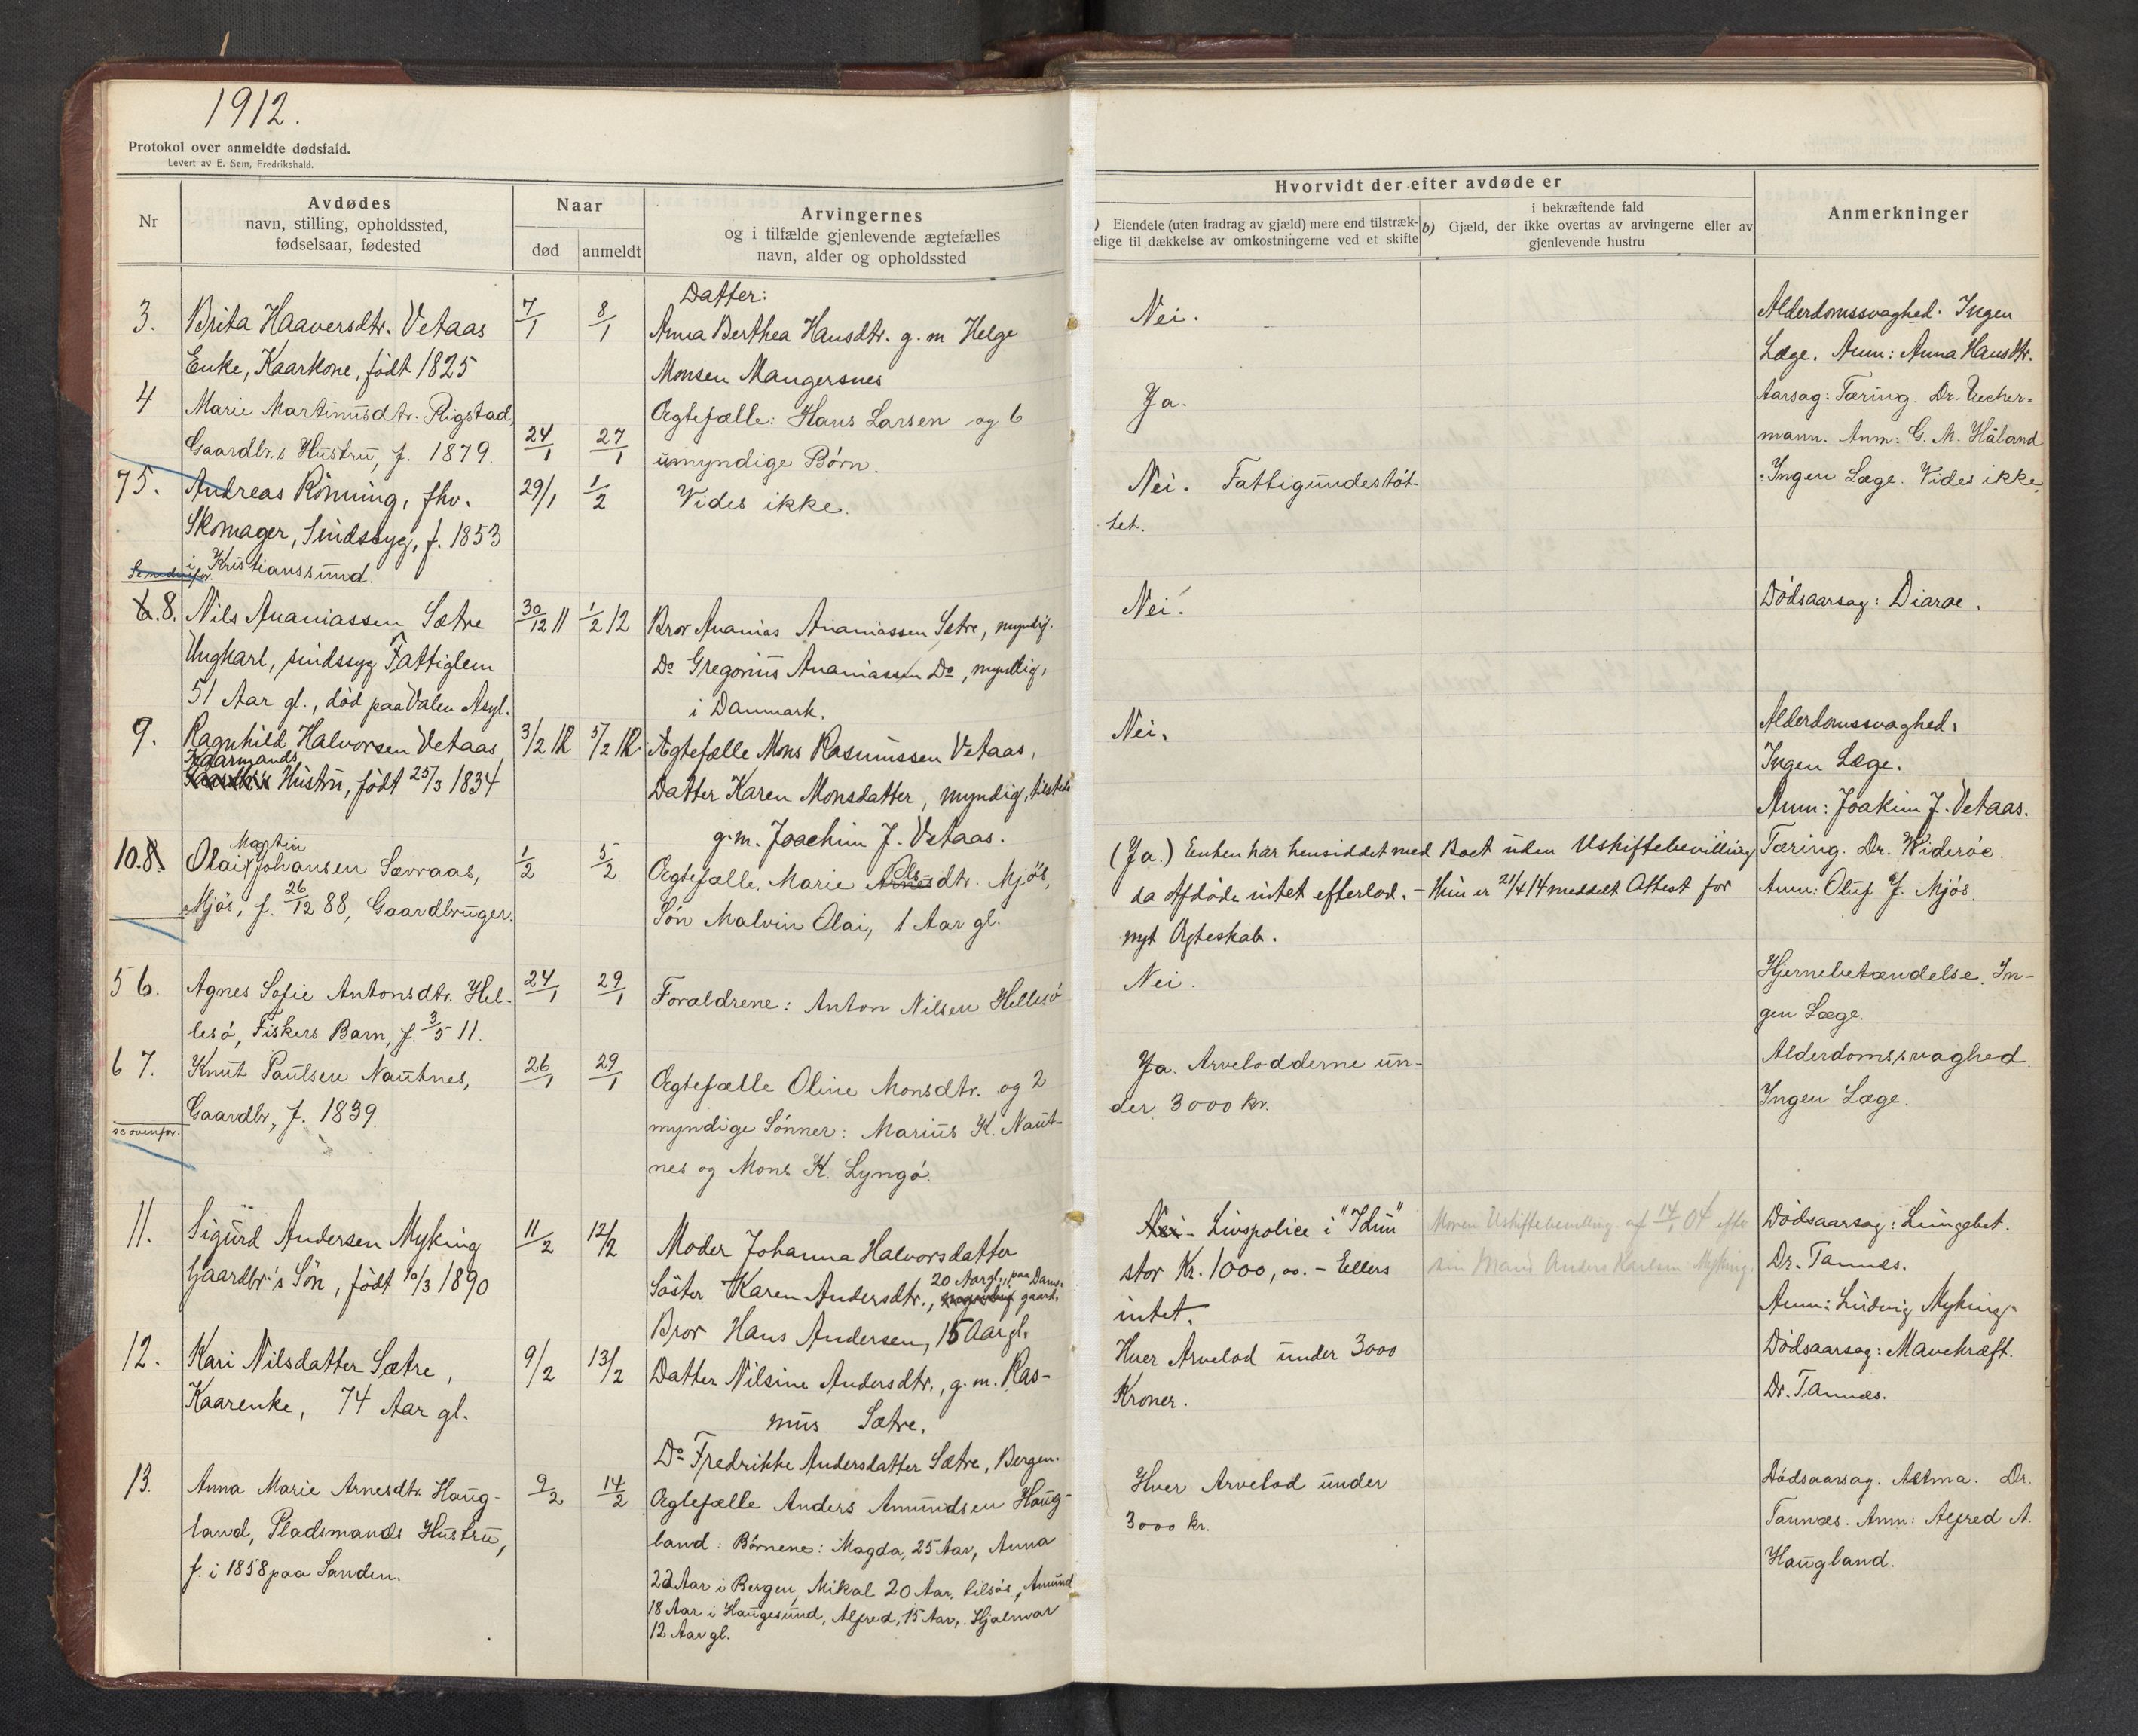 1912.
Protokol over anmeldte dødsfald.
Levert av E. Sem, Fredrikshald.
Nr
Avdødes
navn, stilling, opholdssted,
fødselsaar, fødested
Naar
død anmeldt
Arvingernes
og i tilfælde gjenlevende ægtefælles
navn, alder og opholdssted
Hvorvidt der efter avdøde er
) Eiendele (uten fradrag av gjæld) mere end tilstræk-
elige til dækkelse av omkostningerne ved et skifte
i bekræftende fald
b) Gjæld, der ikke overtas av arvingerne eller av
gjenlevende hustru
Anmerkninger
3. Brita Haaversdtr. Vetaas 7/1 8/1
Enke, Kaarkone, født 1825
Datter:
Anna Berthea Hansdtr. g. m Helge
Monsen Mangersnes
Nei.
Alderdomssvaghed. Ingen
Læge. Anm: Anna Hansdtr.
4 Marie Martinusdtr. Rigstad,
Gaardbr.s Hustru, f. 1879. 24/1 27/1
Ægtefælle: Hans Larsen og 6
umyndige Børn.
Ja.
Aarsag: Tæring. Dr. Uecher-
mann. Anm: G. M. Håland
75. Andreas Rönning, fhv. 29/1 1/2
Skomager, Sindssyg, f. 1853
i Kristianssund.
Vides ikke.
Nei. Fattigundestöt-
tet.
Ingen Læge. Vides ikke.
Se nedenfor.
6.8. Nils Ananiassen Sætre 30/12 11 1/2 12
Ungkarl, sindssyg Fattiglem
51 Aar gl., död paa Valen Asyl.
Bror Ananias Ananiassen Sætre, myndig.
Do Gregorius Ananiassen Do, myndig,
i Danmark.
Nei.
Dödsaarsag: Diaroe.
9. Ragnhild Halvorsen Vetaas 3/2 12 5/2 12
Kaarmands
Gaardbr's Hustru, født 25/3 1834
Ægtefælle Mons Rasmussen Vetaas,
Datter Karen Monsdatter, myndig,
g.m. Joachim J. Vetaas.
Nei.
Alderdomssvaghed.
Ingen Læge.
Anm: Joakim J. Vetaas.
10.8. Olai Martin Johansen Sævraas, 1/2 5/2
Mjös, f. 26/12 88, Gaardbruger.
Ægtefælle. Marie Arnesdtr. Ols Mjös,
Søn Malvin Olai, 1 Aar gl.
(Ja.) Enken har hensiddet med Boet uden Uskiftebevilling
da Afdöde intet efterlod. - Hun er 21/4 14 meddelt Attest for
nyt Ægteskab.
Tæring. Dr. Wideröe.
Anm: Oluf J. Mjös.
56. Agnes Sofie Antonsdtr. Hel- 24/1 29/1
lesö, Fiskers Barn, f. 3/5 11.
Forældrene: Anton Nilsen Hellesö
Nei.
Hjernebetændelse. In-
gen Læge.
67. Knut Paulsen Nautnes, 26/1 29/1
Gaardbr, f. 1839.
se ovenfor.
Ægtefælle Oline Monsdtr. og 2
myndige Sönner: Marius K. Naut-
nes og Mons K. Lyngö.
Ja. Arvelodderne un-
der 3000 kr.
Alderdomssvaghed.
Ingen Læge.
11. Sigurd Andersen Myking 11/2 12/2
Gaardbr's Sön, født 10/3 1890
Moder Johanna Halvorsdatter
20 Aar gl., paa Dams-
Söster Karen Andersdtr., gaard.
Bror Hans Andersen, 15 Aar gl.
Nei - Livspolice i "Idun"
stor Kr. 1000,00. - Ellers
intet.
Moren Uskiftebevilling af 14/1 04 efter
sin Mand Anders Karlsen Myking.
Dödsaarsag: Lungebet.
Dr. Tannæs.
Anm: Ludvig Myking.
12. Kari Nilsdatter Sætre, 9/2 13/2
Kaarenke, 74 Aar gl.
Datter Nilsine Andersdtr., g. m. Ras-
mus Sætre.
Do Fredrikke Andersdatter Sætre, Bergen.
Hver Arvelod under 3000
Kroner.
Dödsaarsag: Mavekræft.
Dr. Tannæs.
13. Anna Marie Arnesdtr. Haug- 9/2 14/2
land, Pladsmands Hustru,
f. i 1858 paa Sanden.
Ægtefælle Anders Amundsen Haug-
land: Børnene: Magda, 25 Aar, Anna
22 Aar i Bergen, Mikal 20 Aar, tilsös, Amund
18 Aar i Haugesund, Alfred, 15 Aar, Hjalmar
12 Aar gl.
Hver Arvelod under
3000 kr.
Dödsaarsag. Astma. Dr.
Tannæs. Anm: Alfred A.
Haugland.